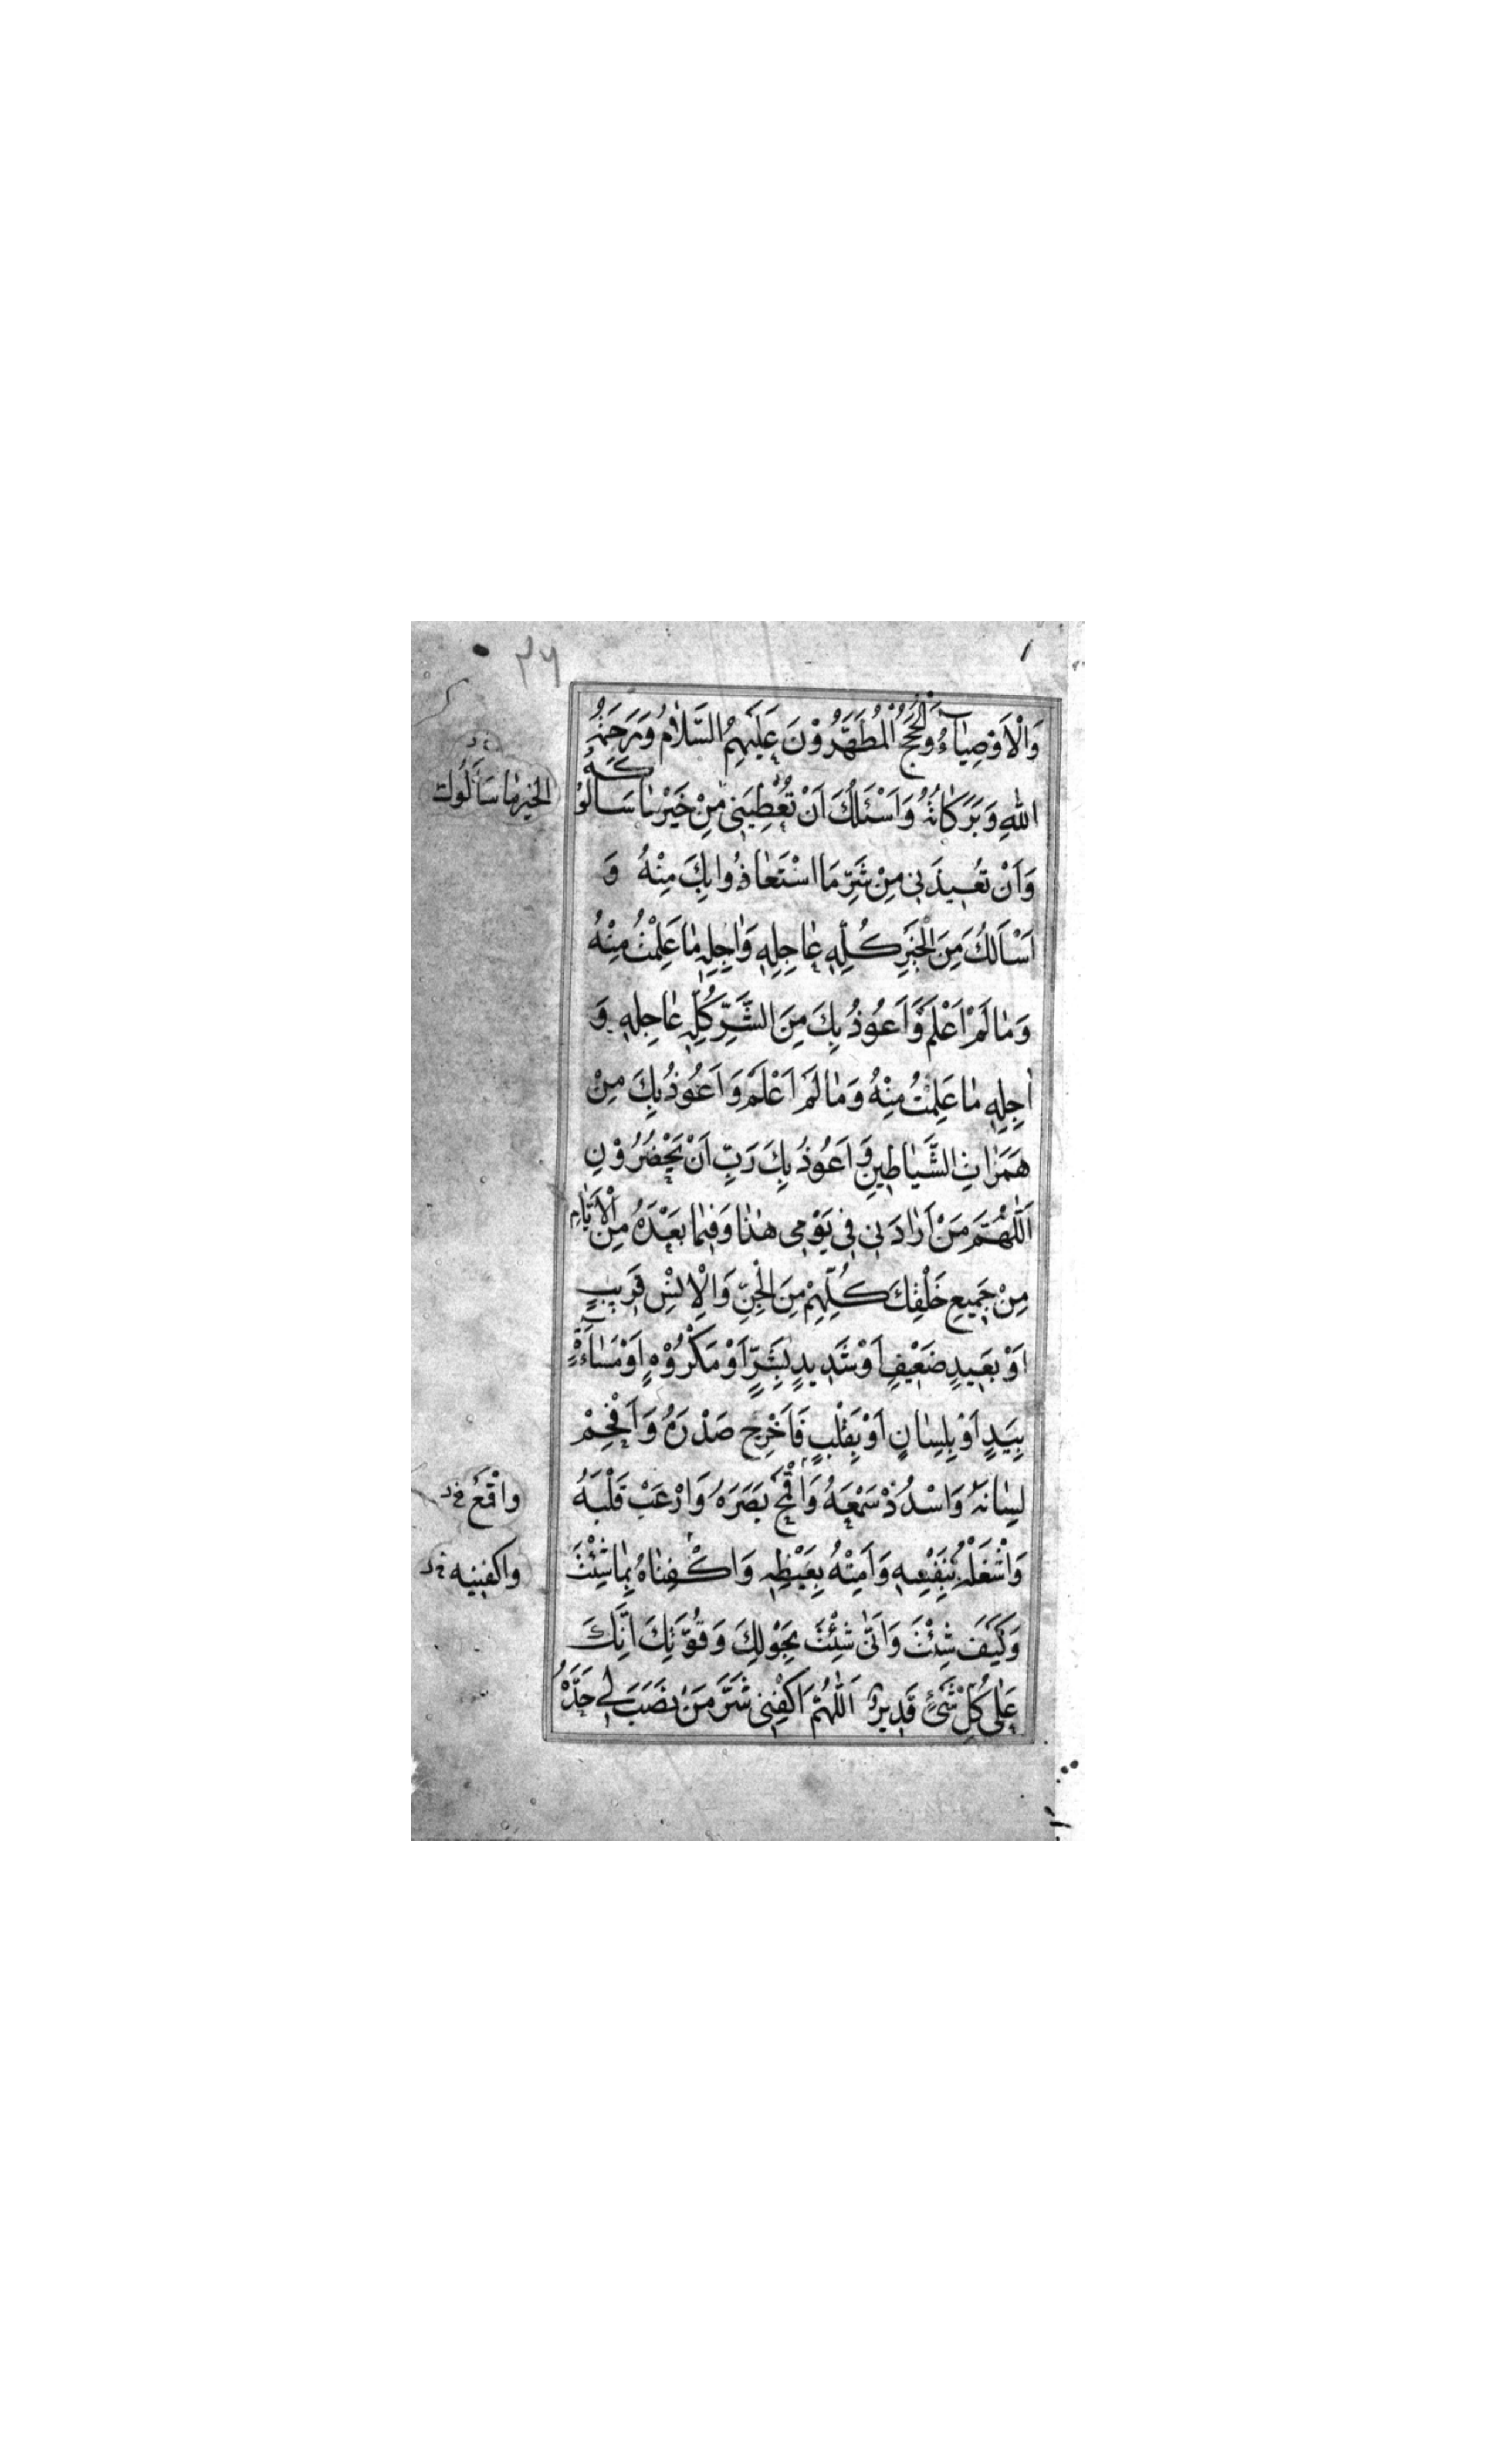 ٢٦
وَالْاَوْصِيَاۤءُ وَالْحُجَجُ الْمُطَهَّرُوْنَ عَلَيْهِمُ السَّلَامُ وَرَحْمَةُ
اللهِ وَبَرَكَاتُهُ وَاَسْئَلُكَ اَنْ تُعْطِيَنِى مِنْ خَيْرِ مَا سَاَلُوْكَ
الخير ما سَأَلُوك
وَاَنْ تُعِيذَنِى مِنْ شَرِّ مَا اسْتَعَاذُوا بِكَ مِنْهُ وَ
اَسْاَلُكَ مِنَ الْخَيْرِ كُلِّهِ عَاجِلِهِ وَاٰجِلِهِ مَا عَلِمْتُ مِنْهُ
وَمَا لَمْ اَعْلَمْ وَاَعُوْذُ بِكَ مِنَ الشَّرِّ كُلِّهِ عَاجِلِهِ وَ
اٰجِلِهِ مَا عَلِمْتُ مِنْهُ وَمَا لَمْ اَعْلَمْ وَاَعُوْذُ بِكَ مِنْ
هَمَزَاتِ الشَّيَاطِينِ وَاَعُوْذُ بِكَ رَبِّ اَنْ يَحْضُرُوْنِ
اَللّٰهُمَّ مَنْ اَرَادَنِى فِى يَوْمِى هٰذَا وَفِيمَا بَعْدَهُ مِنَ الْاَيَّامِ
مِنْ جَمِيعِ خَلْقِكَ كُلِّهِمْ مِنَ الْجِنِّ وَالْاِنْسِ قَرِيبٍ
اَوْ بَعِيدٍ ضَعِيْفٍ اَوْ شَدِيدٍ بِشَرٍّ اَوْ مَكْرُوْهٍ اَوْ مَسَاۤءَةٍ
بِيَدٍ اَوْ بِلِسَانٍ اَوْ بِقَلْبٍ فَاَخْرِجْ صَدْرَهُ وَاَفْحِمْ
لِسَانَهُ وَاسْدُدْ سَمْعَهُ وَاَقْمِحْ بَصَرَهُ وَارْعَبْ قَلْبَهُ
واقْمَعْ
وَاشْغَلْهُ بِنَفْسِهِ وَاَمِتْهُ بِغَيْظِهِ وَاكْفِنَاهُ بِمَا شِئْتَ
واكفنيه
وَكَيْفَ شِئْتَ وَاَنّٰى شِئْتَ بِحَوْلِكَ وَقُوَّتِكَ اِنَّكَ
عَلٰى كُلِّ شَىْءٍ قَدِيرٌ اَللّٰهُمَّ اكْفِنِى شَرَّ مَنْ نَصَبَ لِى حَدَّهُ